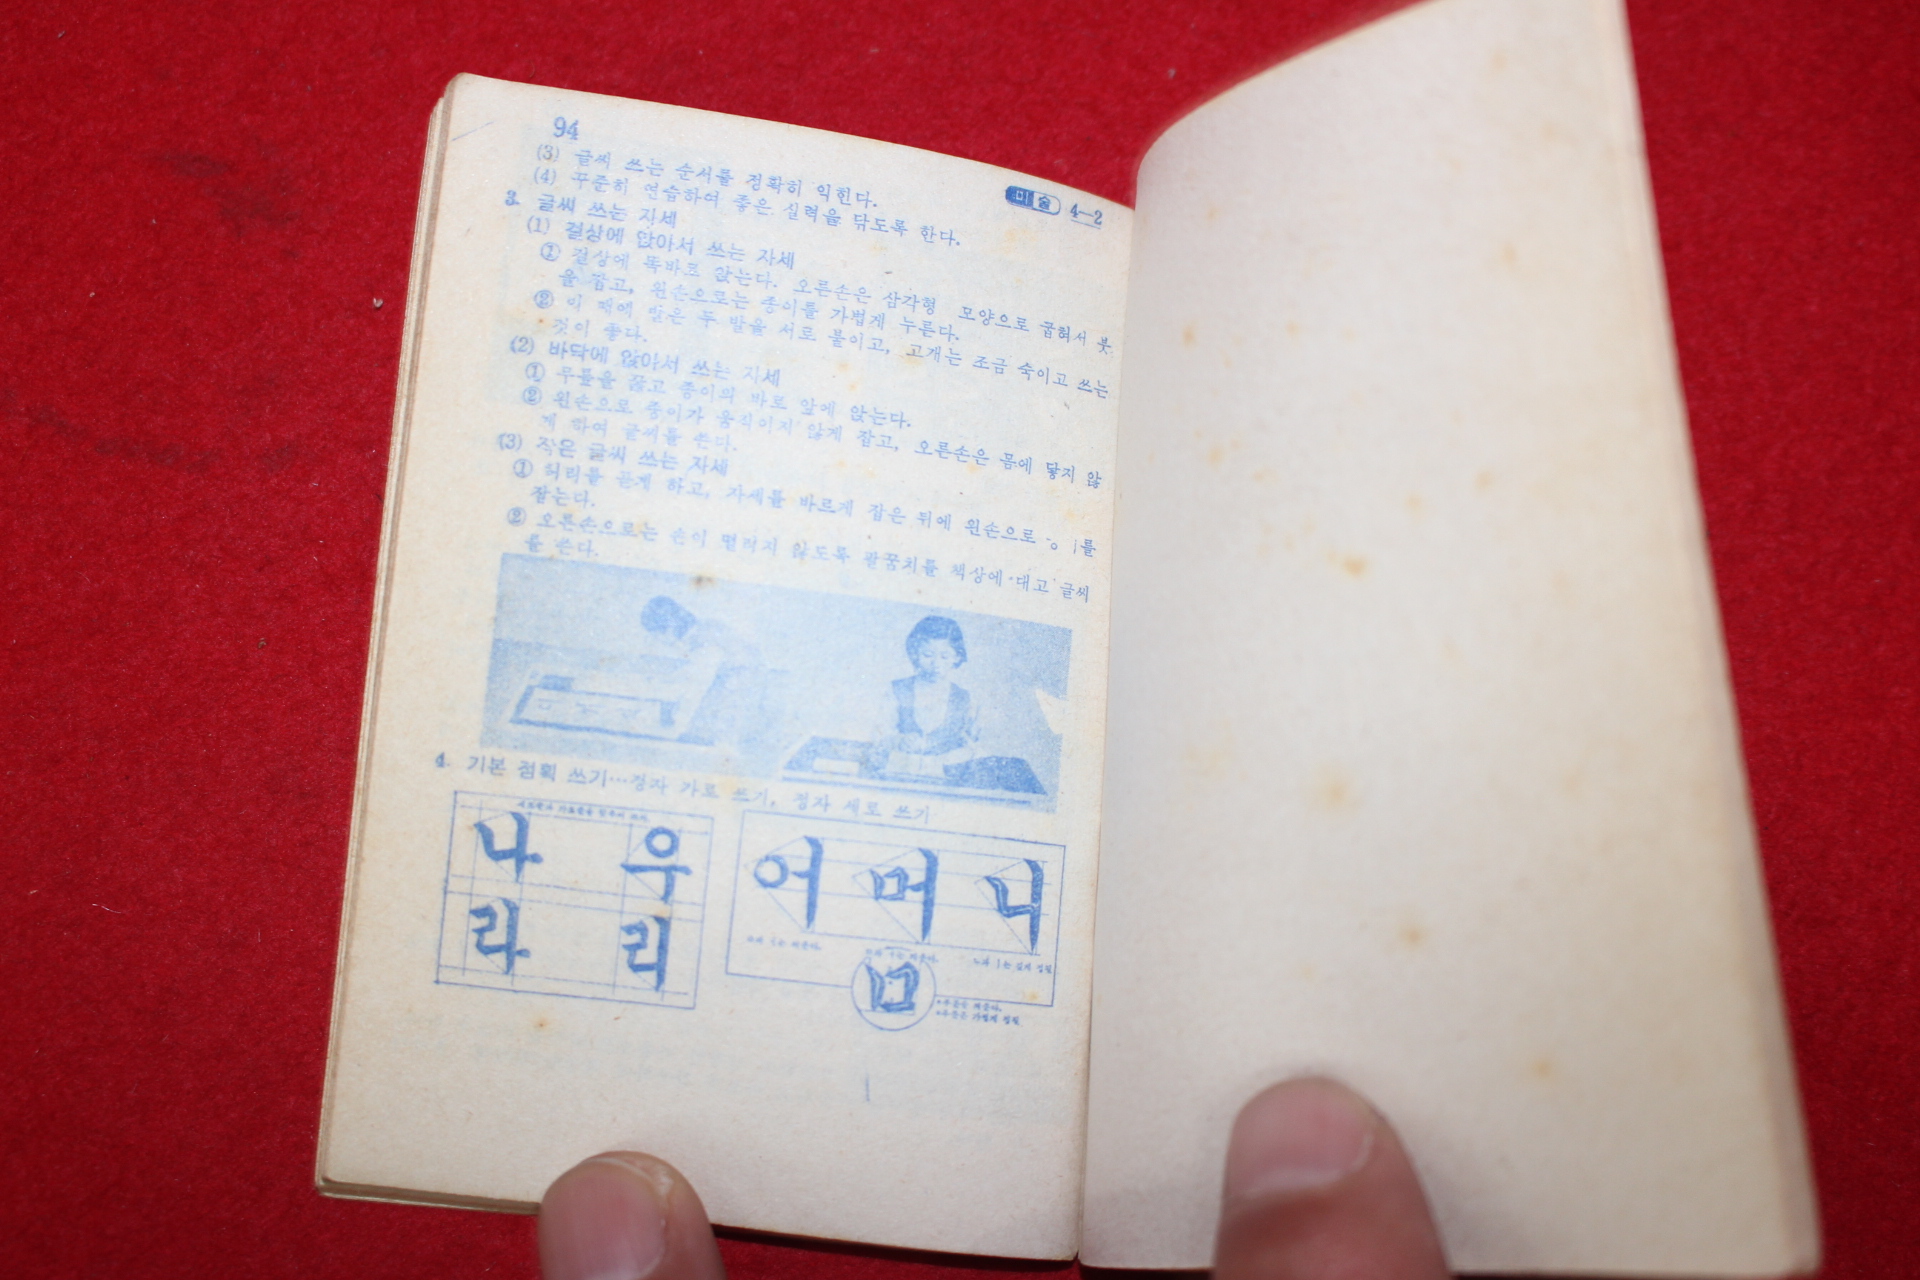 94
미술 4—2
(3) 글씨 쓰는 순서를 정확히 익힌다.
(4) 꾸준히 연습하여 좋은 실력을 닦도록 한다.
3. 글씨 쓰는 자세
(1) 걸상에 앉아서 쓰는 자세
① 걸상에 똑바로 앉는다. 오른손은 삼각형 모양으로 굽혀서 붓
을 잡고, 왼손으로는 종이를 가볍게 누른다.
② 이 때에 발은 두 발을 서로 붙이고, 고개는 조금 숙이고 쓰는
것이 좋다.
(2) 바닥에 앉아서 쓰는 자세
① 무릎을 꿇고 종이의 바로 앞에 앉는다.
② 왼손으로 종이가 움직이지 않게 잡고, 오른손은 몸에 닿지 않
게 하여 글씨를 쓴다.
(3) 작은 글씨 쓰는 자세
① 허리를 곧게 하고, 자세를 바르게 잡은 뒤에 왼손으로
잡는다.
② 오른손으로는 손이 떨려지 않도록 팔꿈치를 책상에 대고 글씨
를 쓴다.
4. 기본 점획 쓰기…정자 가로 쓰기, 정자 세로 쓰기
나 우
라 리
어 머 니
ㅁ